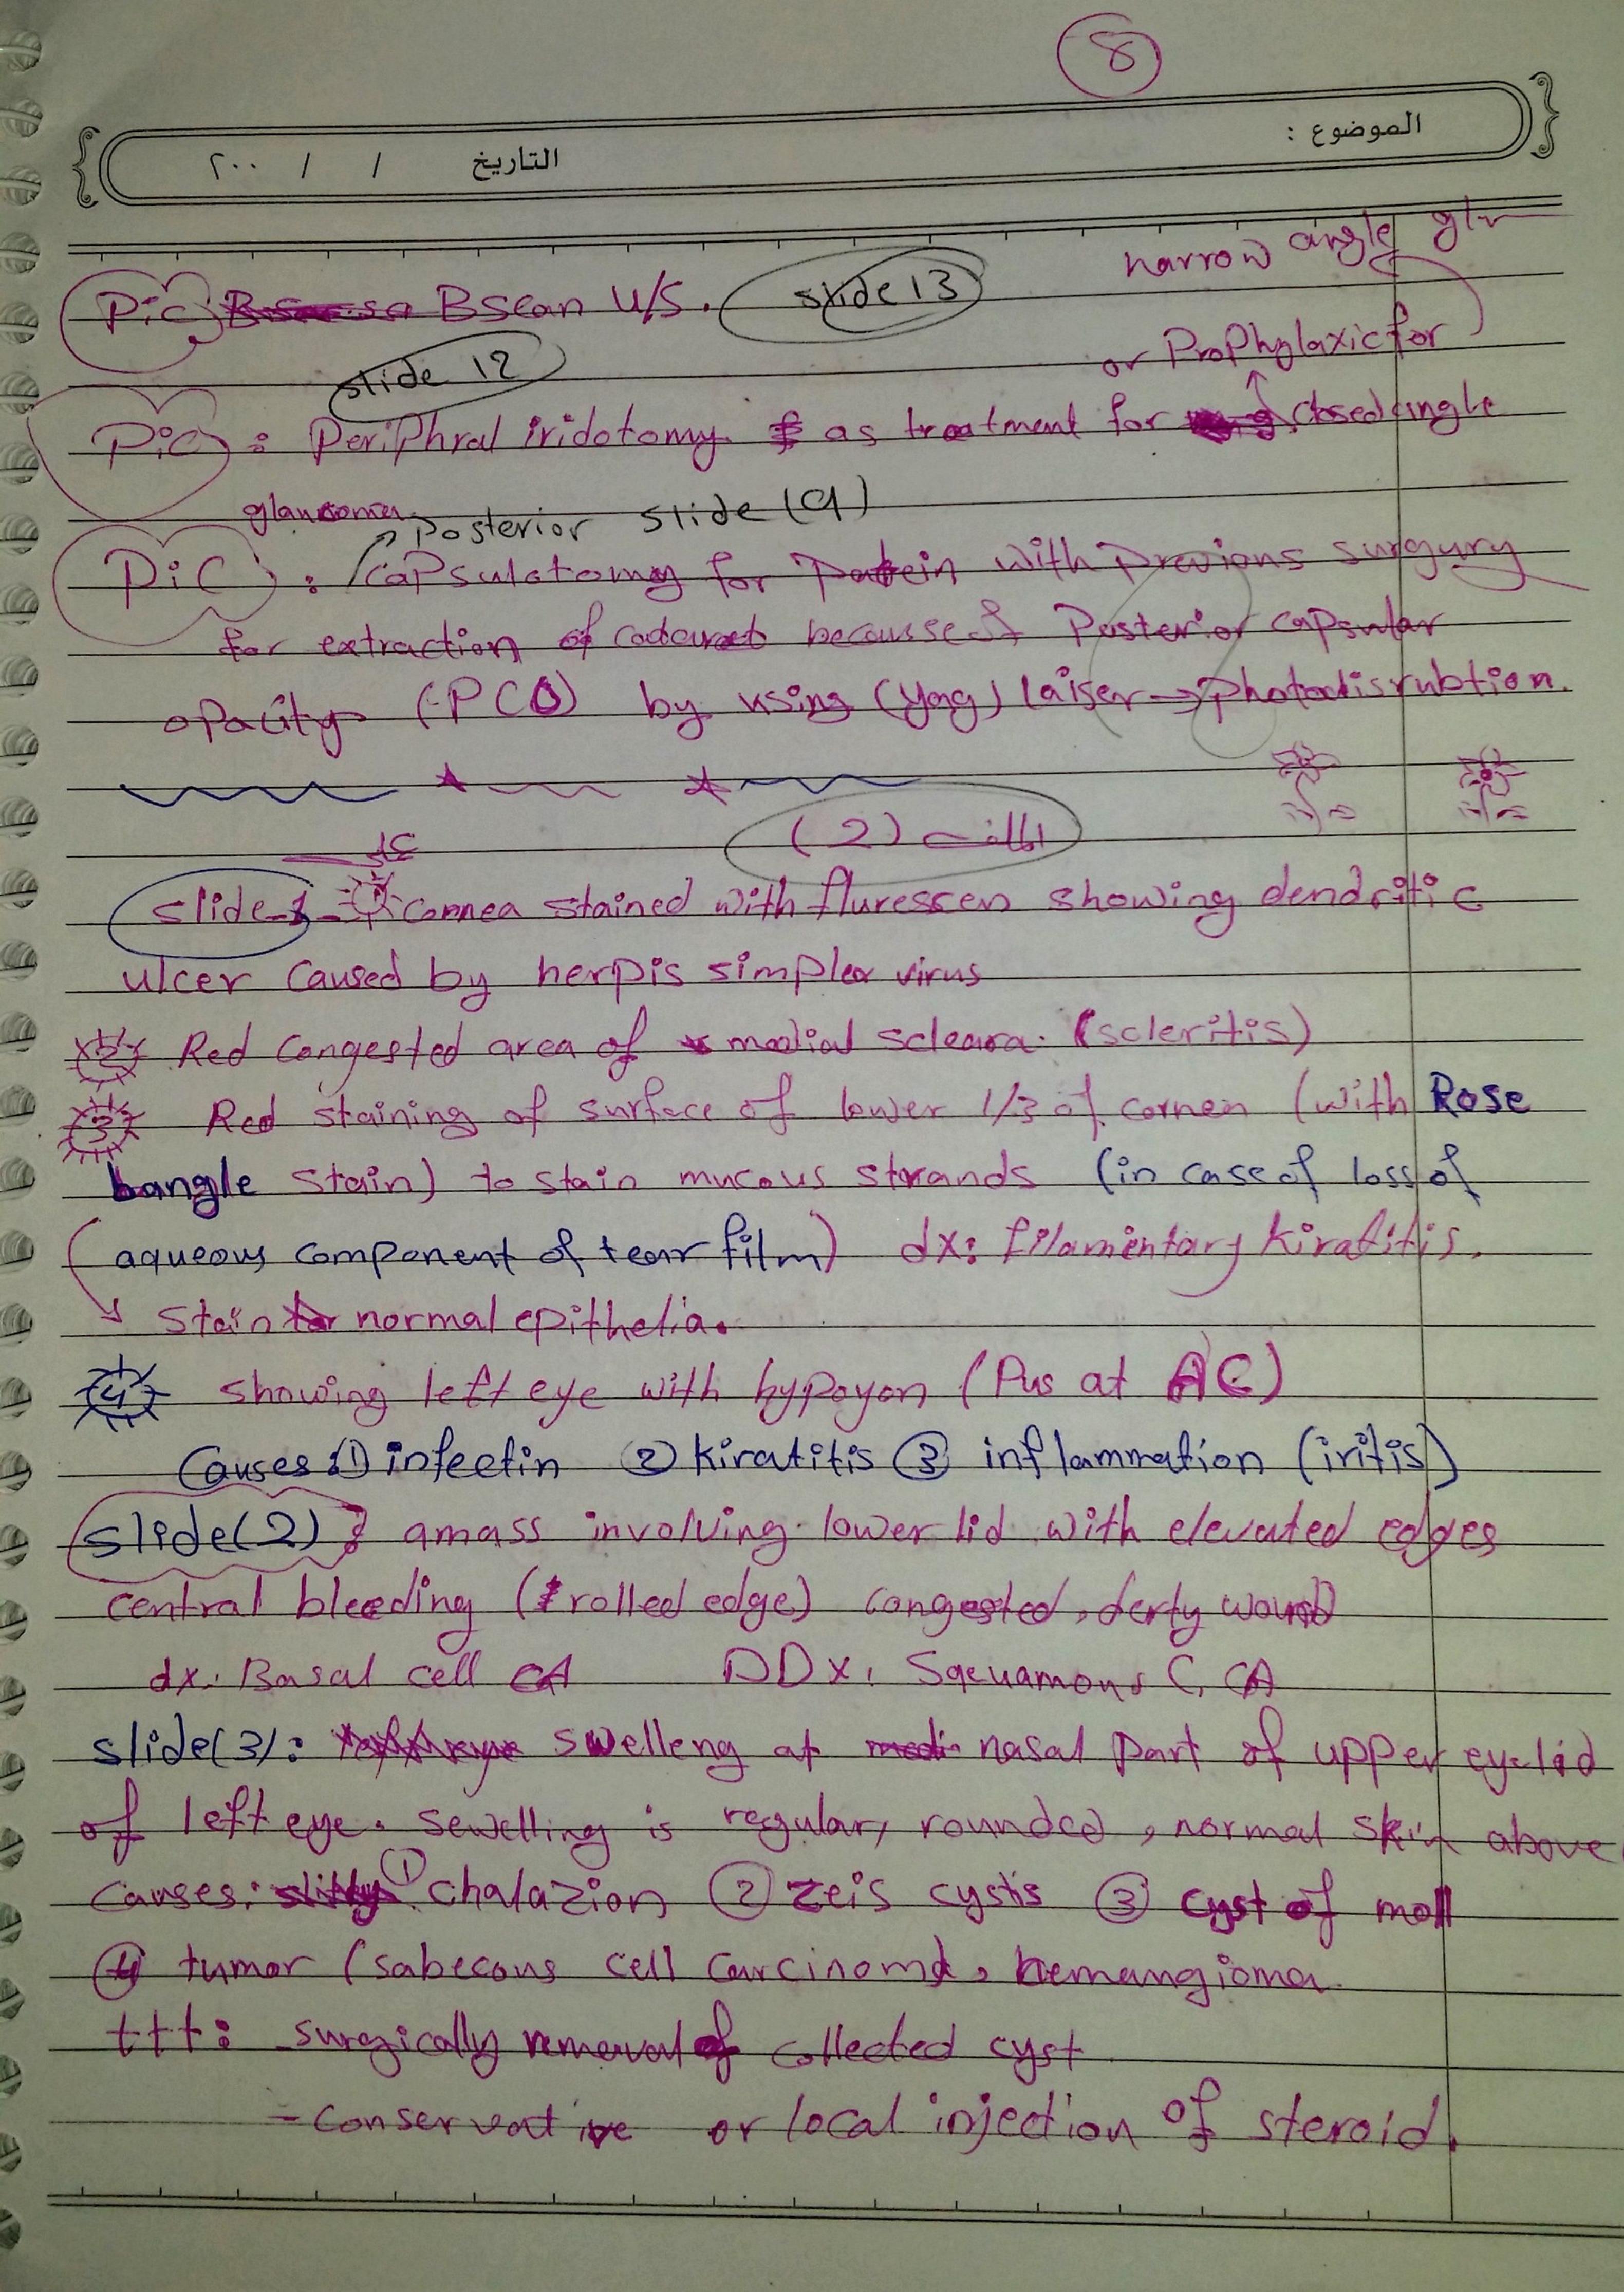 8
الموضوع :
التاريخ / / ٢٠٠
narrow angle
Pic Bscan U/S. slide 13
or Prophylaxic for
slide 12
Pic : Periphral iridotomy as treatment for closed angle
glaucoma
Posterior slide (9)
Pic : capsulatomy for Patein with Previons surgury
for extraction of cataract becausse of Posterior capsular
opacity (PCO) by using (yag) laiser → photodisrubtion.
(2) الملف
slide 1 - cornea stained with fluressen showing dendritic
ulcer caused by herpis simplex virus
2 Red congested area of medial scleara. (scleritis)
3 Red staining of surface of lower 1/3 of cornea (with Rose
bangle stain) to stain mucous strands (in case of loss of
aqueous component of tear film) dx: filamentary kiratitis.
↘ stain normal epithelia.
4 showing left eye with hypoyon (Pus at AC)
Causes: ① infectin ② kiratitis ③ inflammation (iritis)
slide(2) : a mass involving lower lid with elevated edges
central bleeding (rolled edge) congested, derty wound
dx. Basal cell CA DDx. Sqeuamous C. CA
slide(3): swelleng at nasal part of upper eyelid
of left eye. sewelling is regular, rounded, normal skin above
causes: ① chalazion ② zeis cystis ③ cyst of moll
④ tumor (sabecous cell carcinoma, hemangioma
ttt: - surgically removal of collected cyst
- conservative or local injection of steroid.